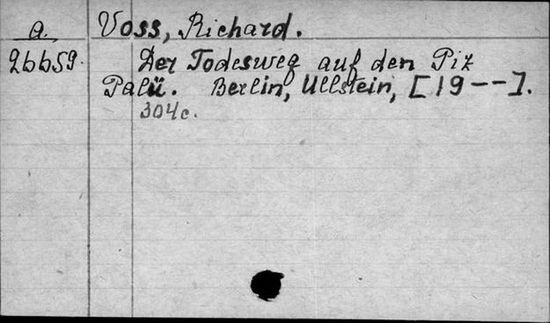 a. Voss, Richard.
26659. Der Todesweg auf den Piz
Palü. Berlin, Ullstein, [19--].
304c.